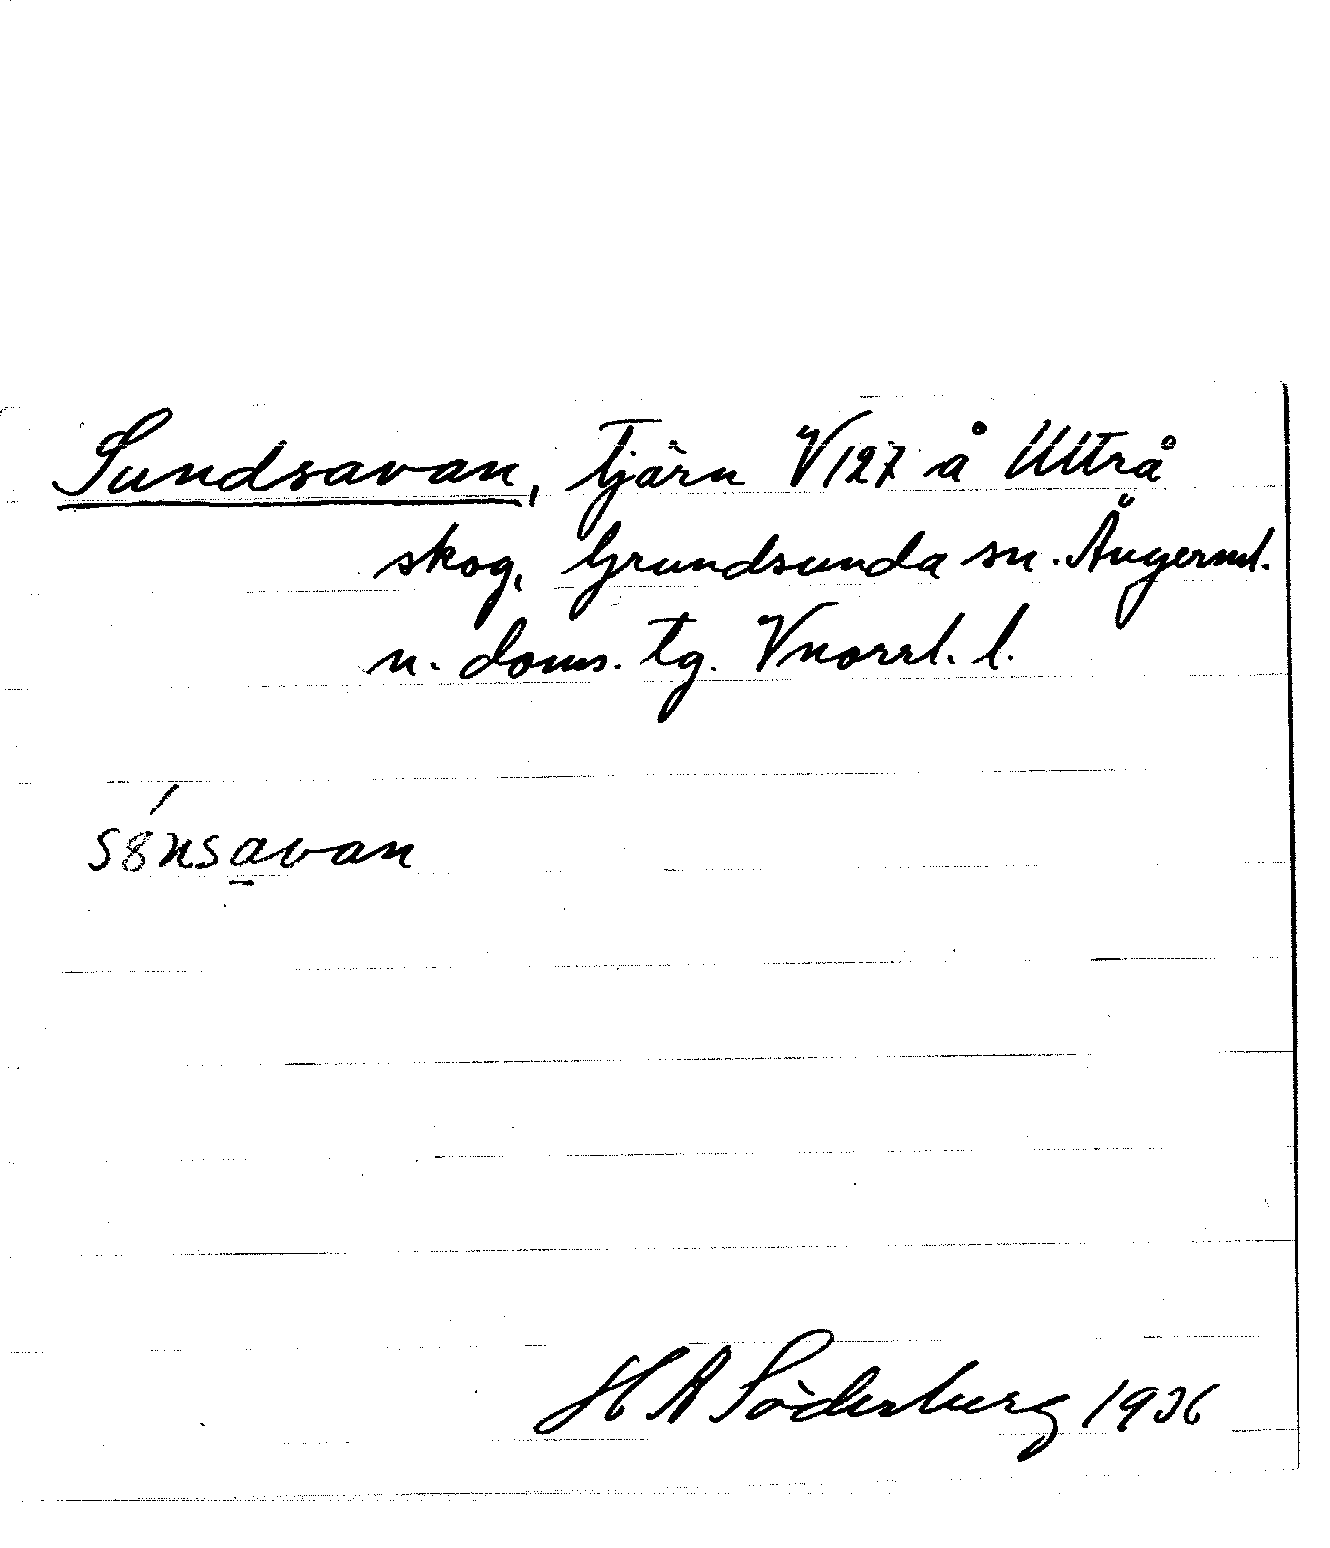 Sundsavan, tjärn V127 å Utterå
skog, Grundsunda sn. Ångerml.
n. doms. tg. Vnorrl. l.
sȣ́nsa̲van
H A Söderberg 1936